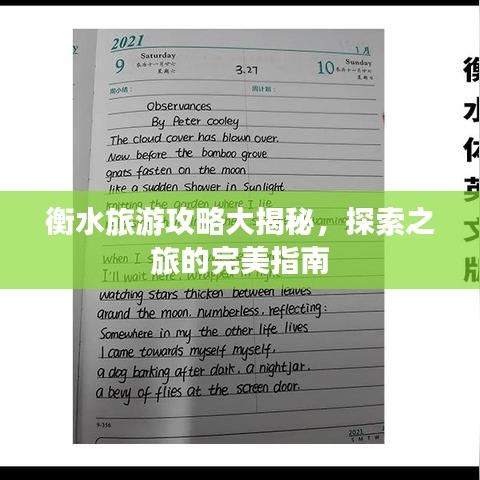 2021
1月
9 Saturday
星期六
3.27
10 Sunday
星期日
周小结：
周计划：
Observances
By Peter cooley
The cloud cover has blown over.
Now before the bamboo grove
gnats fasten on the moon
like a sudden shower in Sunlight
knitting the garden where it
衡水旅游攻略大揭秘，探索之
旅的完美指南
when I s
I'll wait here
watching stars thicken between leaves
around the moon, numberless, reflecting:
Somewhere in my the other life lives
I came towards myself myself,
a dog barking after dark, a nightjar,
a bevy of flies at the screen door.
9-356
2021
S M T W
衡水体英文版